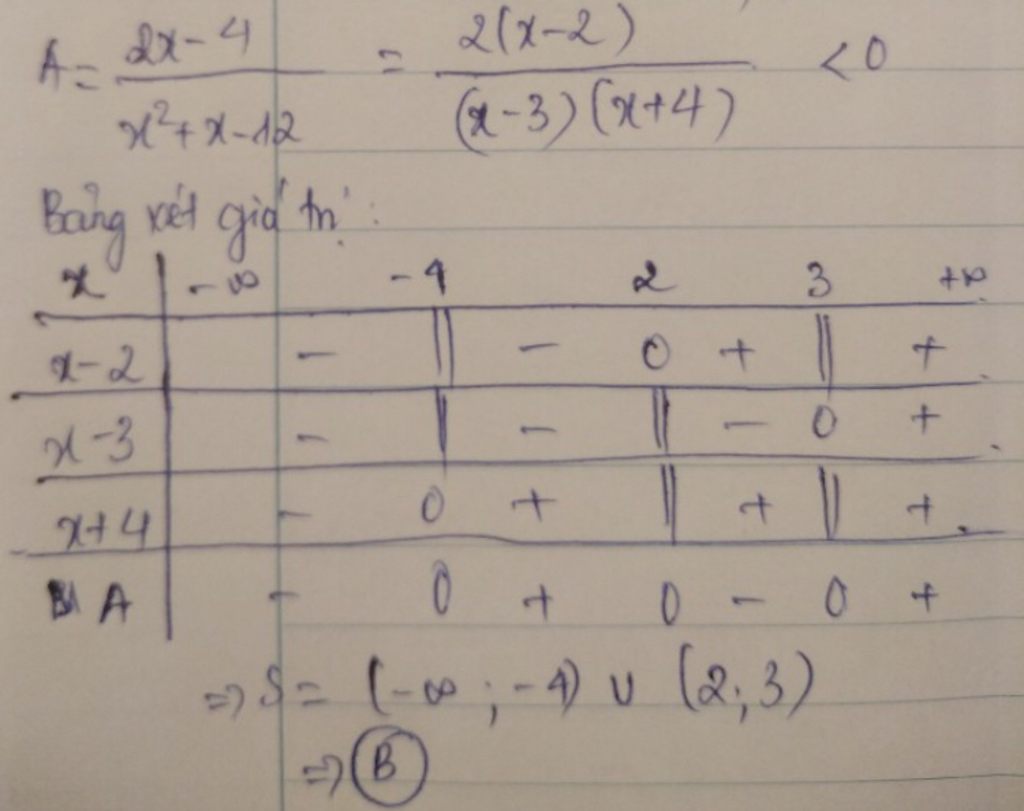 A = (2x-4)/(x²+x-12) = 2(x-2)/((x-3)(x+4)) < 0
Bảng xét giá trị:
x | -∞ -4 2 3 +∞
x-2 | - || - 0 + || +
x-3 | - || - || - 0 +
x+4 | - 0 + || + || +
A | - 0 + 0 - 0 +
=> S = (-∞; -4) ∪ (2; 3)
=> B